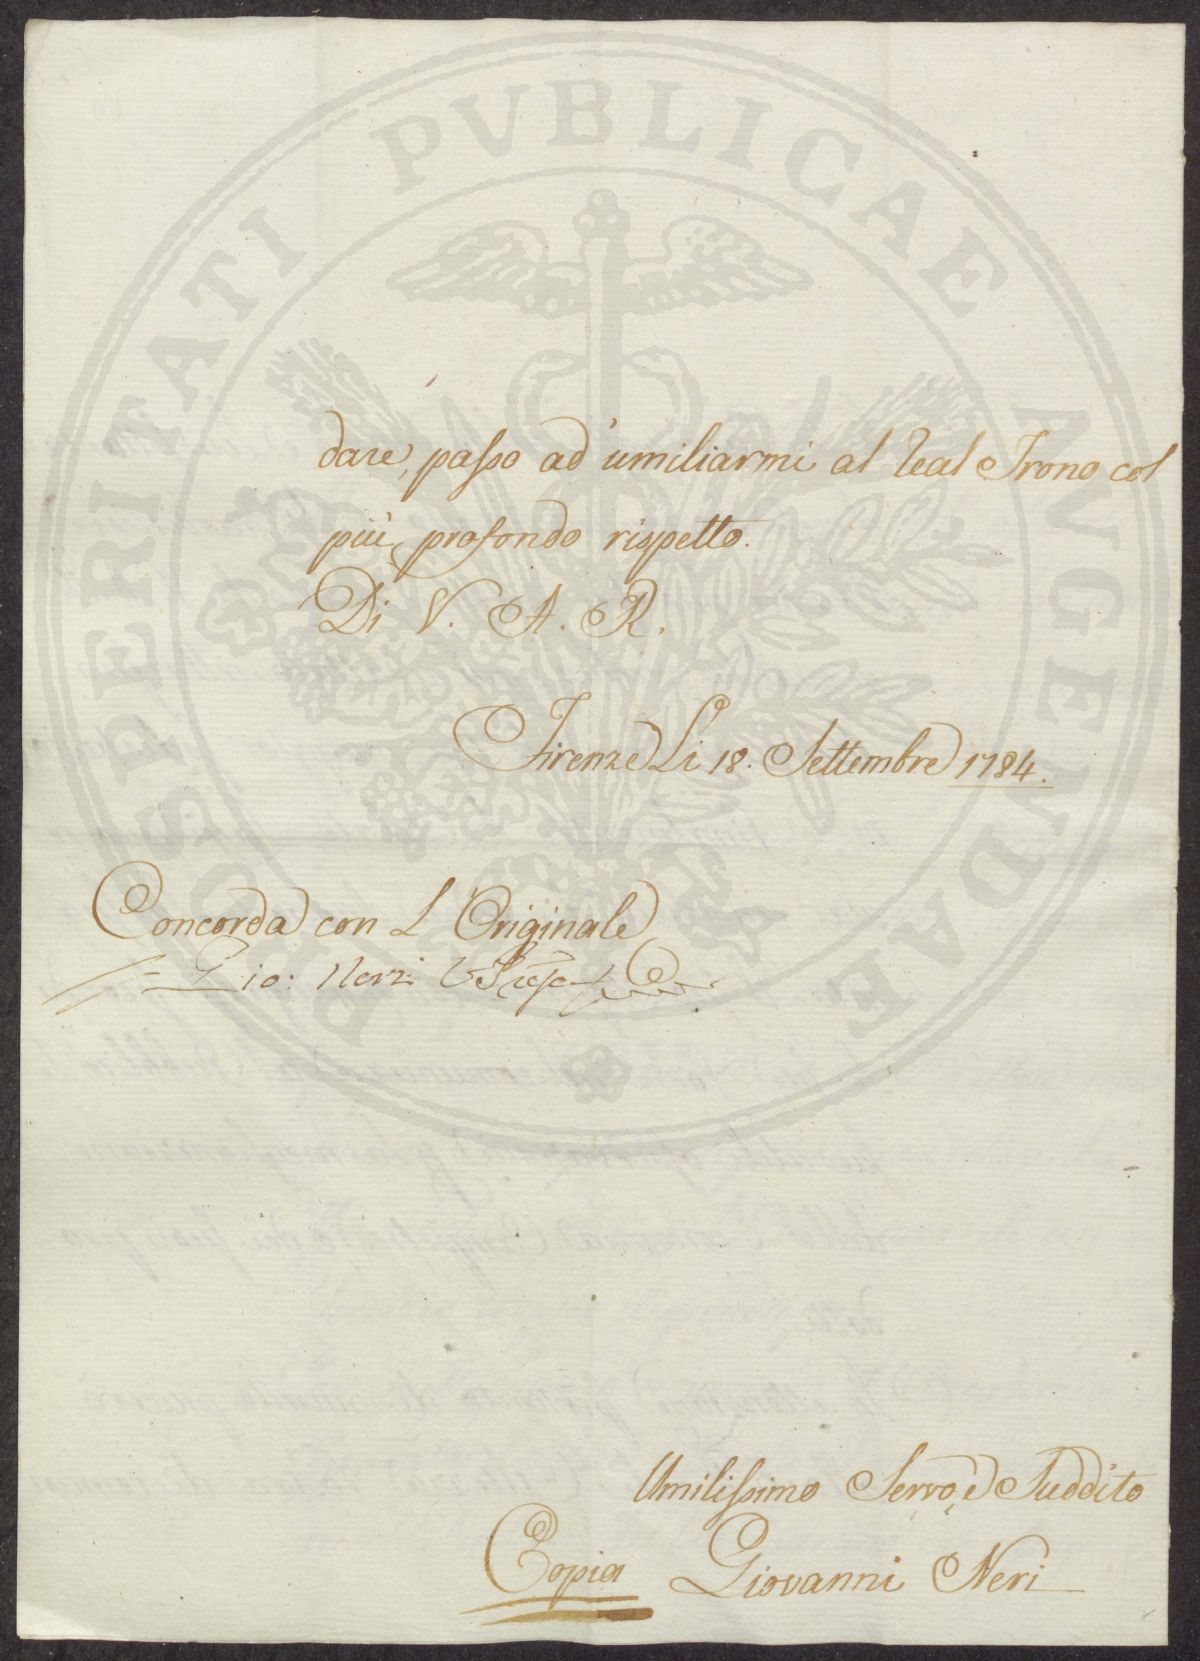 PROSPERITATI PVBLICAE AVGENDAE
dare, passo ad umiliarmi al Real Trono col
più profondo rispetto.
Di V. A. R.
Firenze Li 18. Settembre 1784.
Concorda con L'Originale
Gio: Neri
Umilissimo Servo, e Suddito
Copia Giovanni Neri